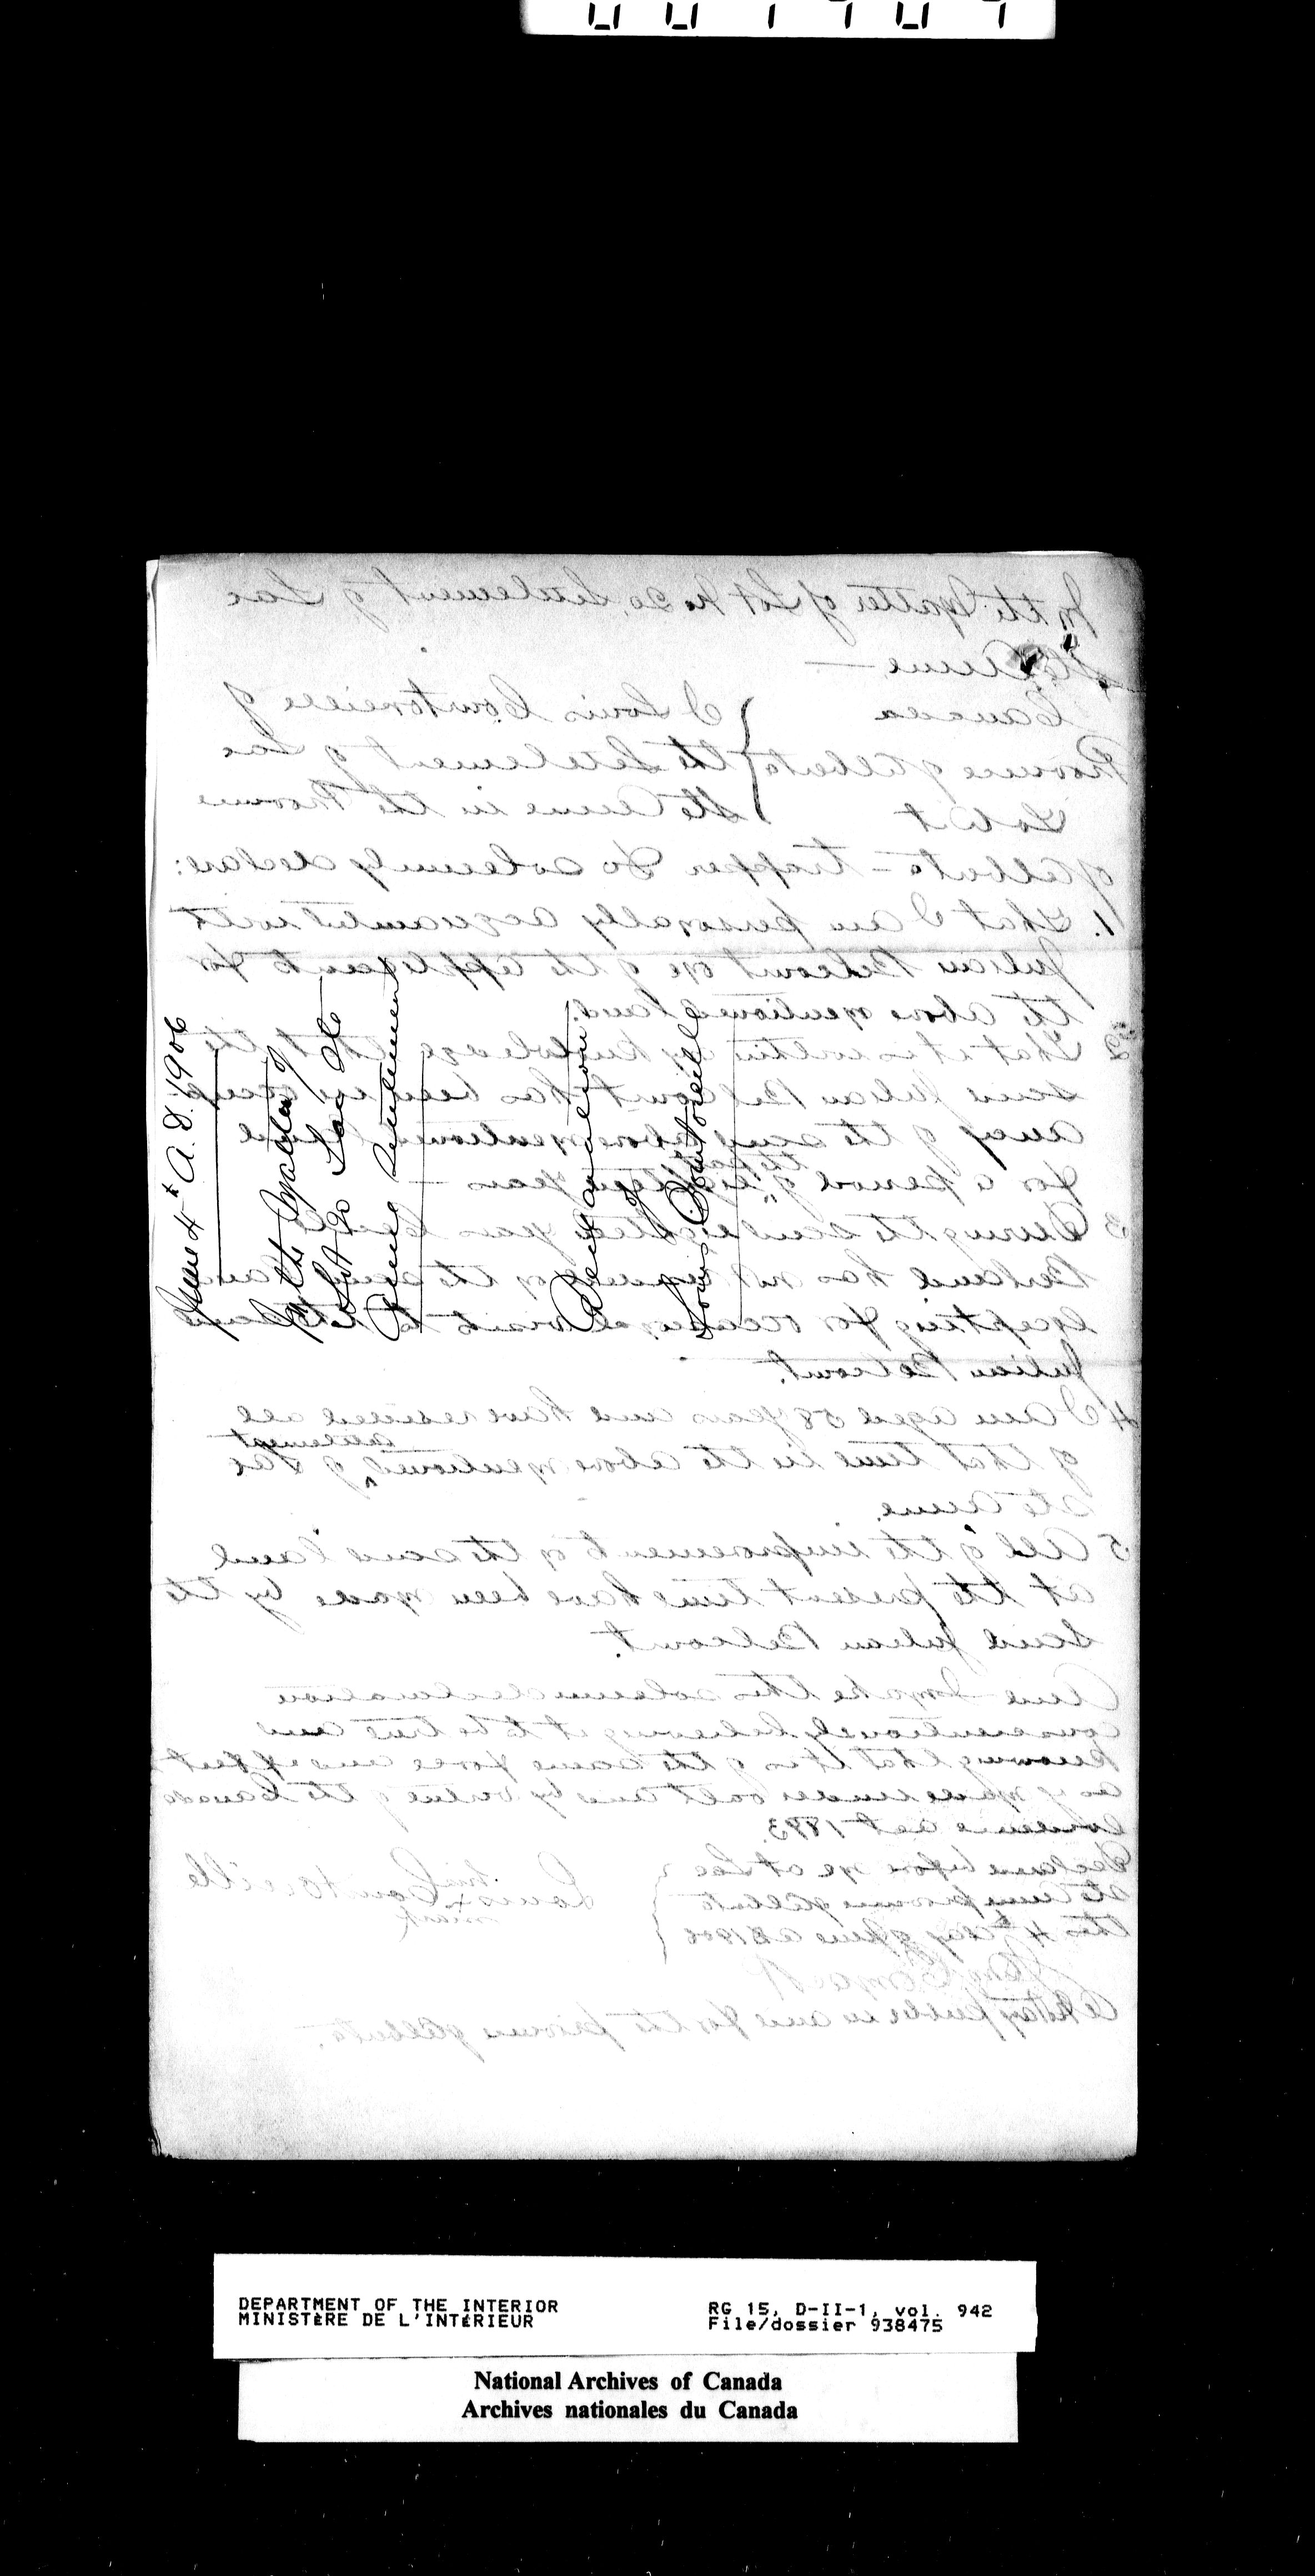 June 4th A.D. 1906
In the Matter of
Lot 20 Lac Ste
Anne Settlement
Declaration
of
Louis Courtoreille
In the Matter of Lot No 20, Settlement of Lac
Ste Anne —
Canada
Province of Alberta
To Wit
I Louis Courtoreille of
the Settlement of Lac
Ste Anne in the Province
of Alberta - trapper Do solemnly declare:
1. That I am personally acquainted with
Julian Belcourt one of the applicants for
the above mentioned land.
2 That it is within my knowledge that the
said Julian Belcourt has been in occup
ancy of the said above mentioned land
for a period of the past eighteen years —
3 During the said eighteen years
has not on the said land
excepting for occasional visits to the said
Julian Belcourt.
4 I am aged 58 years and have resided all
of that time in the above mentioned settlement of Lac
Ste Anne.
5 All of the improvements on the said land
at the present time have been made by the
said Julian Belcourt.
And I make this solemn declaration
conscientiously believing it to be true and
knowing that it is of the same force and effect
as if made under oath and by virtue of the Canada
Evidence Act 1893.
Declared before me at Lac
Ste Anne province of Alberta
this 4th day of June A D 1906
his
Louis x Courtoreille
mark
A Notary public in and for the province of Alberta.
DEPARTMENT OF THE INTERIOR
MINISTÈRE DE L'INTÉRIEUR
RG 15, D-II-1, vol. 942
File/dossier 938475
National Archives of Canada
Archives nationales du Canada